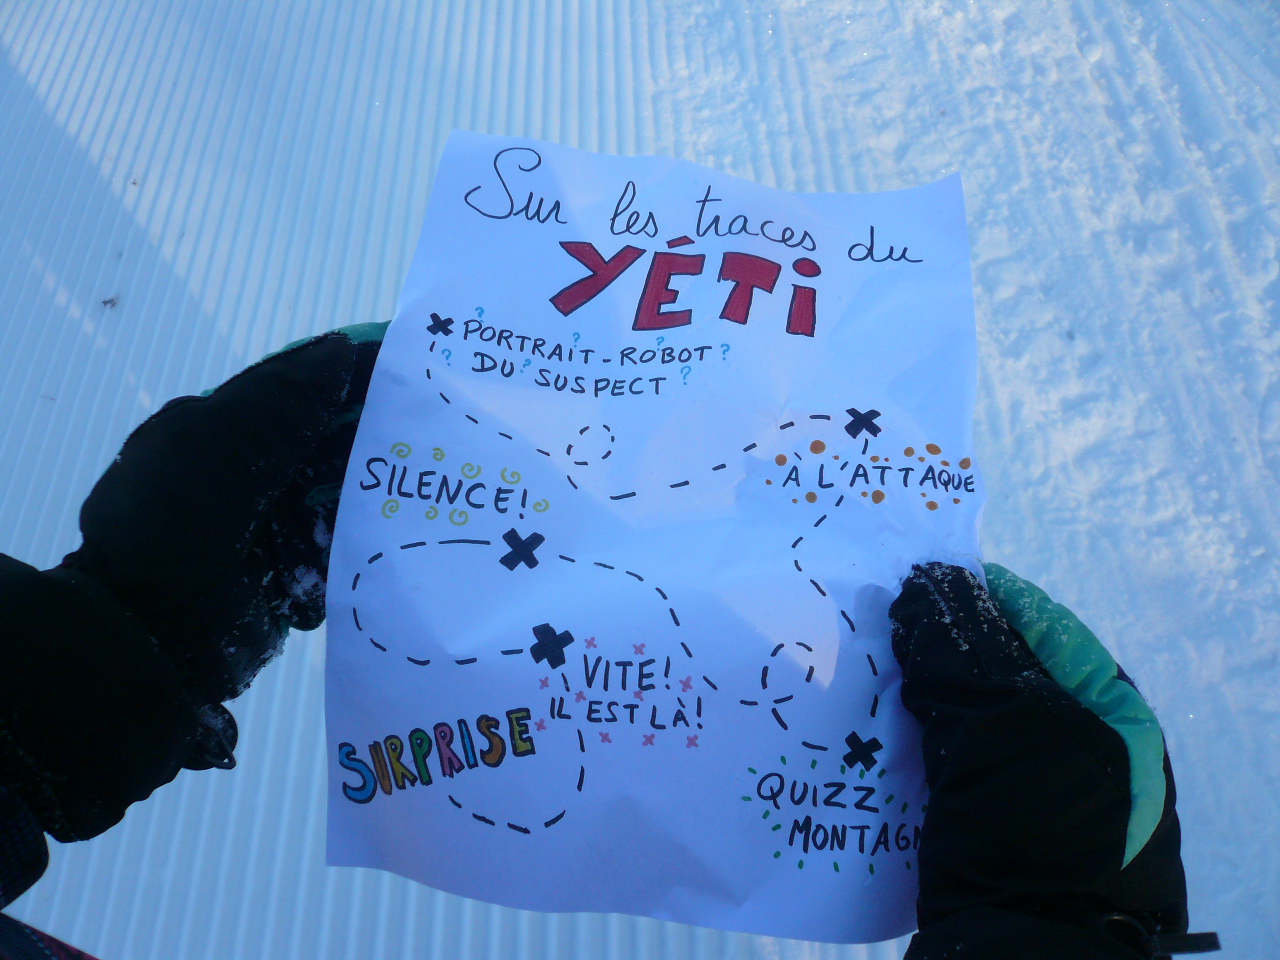 Sur les traces du
YÉTi
PORTRAIT-ROBOT
DU SUSPECT
À L'ATTAQUE
SILENCE!
VITE!
IL EST LÀ!
SURPRISE
QUIZZ